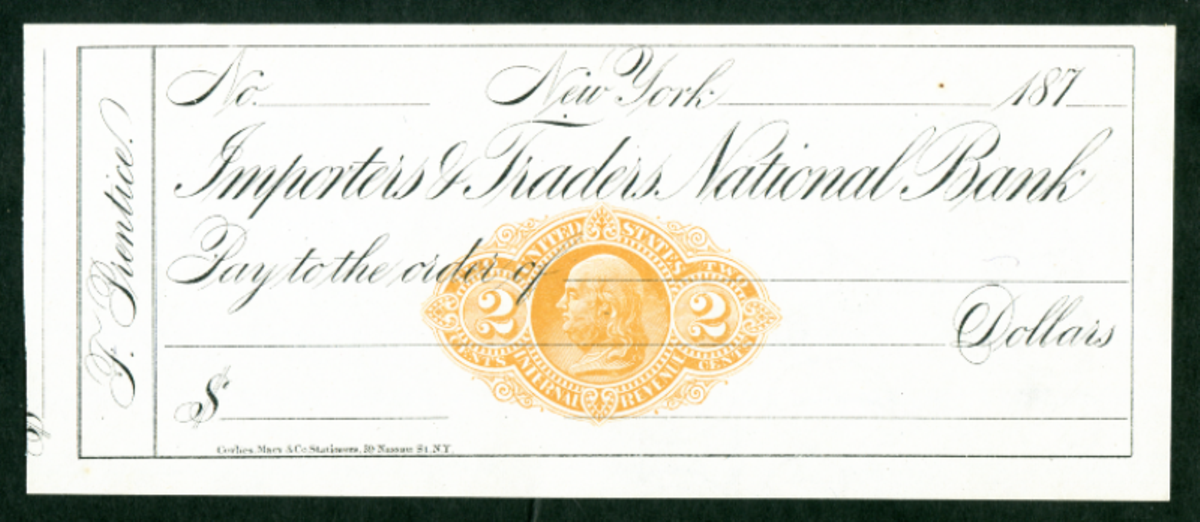 F. Prentice.
No. New York 187
Importers & Traders National Bank
Pay to the order of
UNITED STATES
TWO
2 2
CENTS INTERNAL REVENUE CENTS
Dollars
$
Macy & Co. Stationers, 10 Nassau St. N.Y.